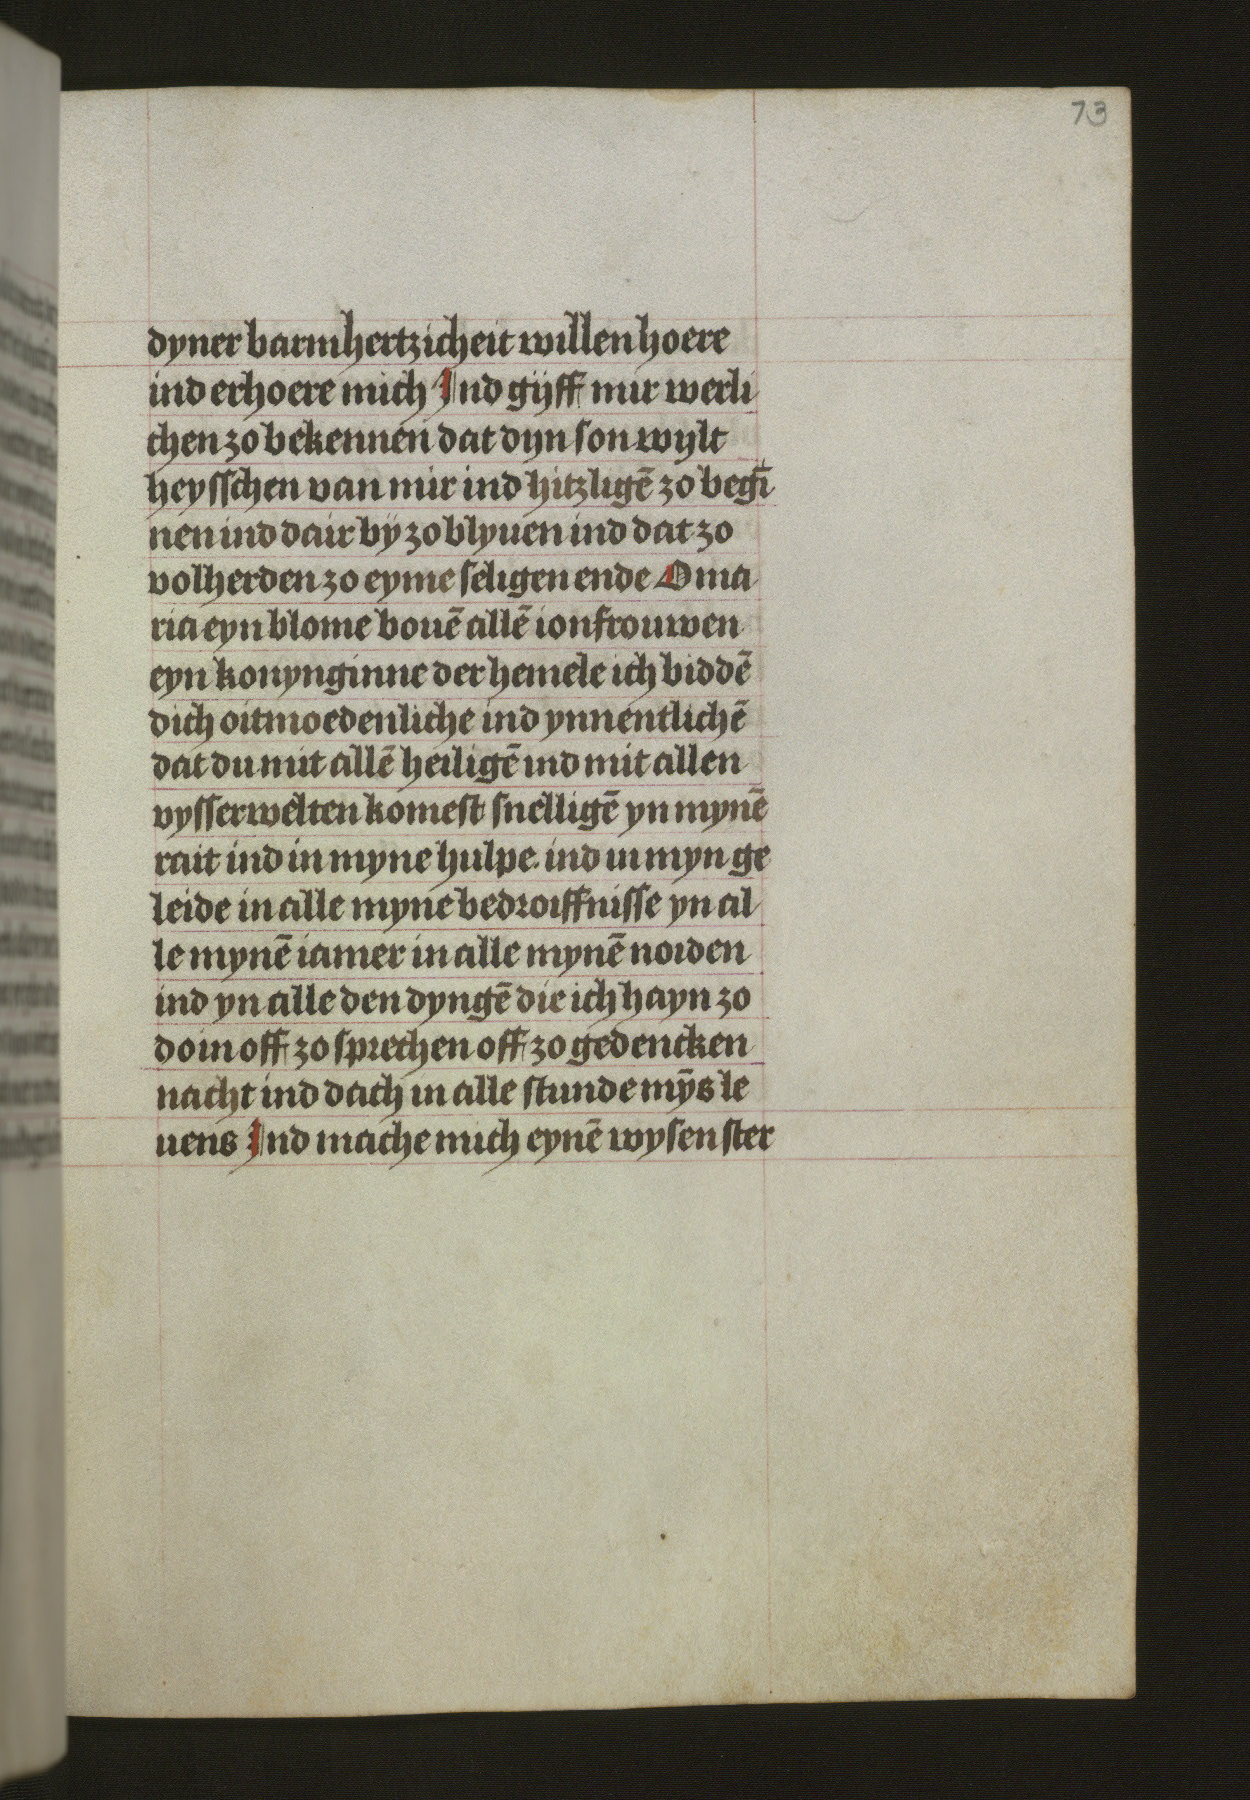 73
dyner barmhertzicheit willen hoere
ind erhoere mich Ind gijff mir werli
chen zo bekennen dat dyn son wylt
heysschen van mir ind hitzligē zo begī
nen ind dair bÿ zo blyuen ind dat zo
volherden zo eyme seligen ende O ma
ria eyn blome bouē allē ionfrouwen
eyn konynginne der hemele ich biddē
dich oitmoedenliche ind ynnentlichē
dat du mit allē heiligē ind mit allen
vysserwelten komest snelligē yn mynē
rait ind in myne hulpe. ind in myn ge
leide in alle myne bedroiffnisse yn al
le mynē iamer in alle mynē noiden
ind yn alle den dyngē die ich hayn zo
doin off zo sprechen off zo gedencken
nacht ind dach in alle stunde mȳs le
uens Ind mache mich eynē wysen ster